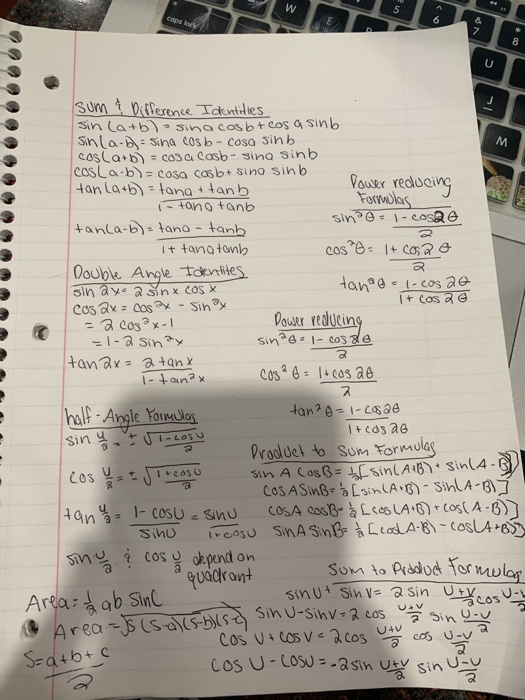 caps lock
W
E
5
6
&
7
*
8
U
J
M
Sum & Difference Identities
sin(a+b) = sina cosb + cosa sinb
sin(a-b) = sina cosb - cosa sinb
cos(a+b) = cosa cosb - sina sinb
cos(a-b) = cosa cosb + sina sinb
tan(a+b) = tana + tanb
1 - tana tanb
tan(a-b) = tana - tanb
1 + tana tanb
Power reducing
Formulas
sin²θ = 1 - cos2θ
2
cos²θ = 1 + cos2θ
2
tan²θ = 1 - cos2θ
1 + cos2θ
Double Angle Identites
sin 2x = 2 sin x cos x
cos 2x = cos²x - sin²x
= 2 cos²x - 1
= 1 - 2 sin²x
tan 2x = 2 tanx
1 - tan²x
Power reducing
sin²θ = 1 - cos2θ
2
cos²θ = 1 + cos2θ
2
tan²θ = 1 - cos2θ
1 + cos2θ
half-Angle Formulas
sin u/2 = ± √1-cosu
2
cos u/2 = ± √1+cosu
2
tan u/2 = 1 - cosu = sinu
sinu 1+cosu
sin u/2 & cos u/2 depend on
quadrant
Product to Sum Formulas
sin A cosB = ½[sin(A+B) + sin(A-B)]
cosA sinB = ½[sin(A+B) - sin(A-B)]
cosA cosB = ½[cos(A+B) + cos(A-B)]
sinA sinB = ½[cos(A-B) - cos(A+B)]
Area = ½ ab sinC
Area = √s(s-a)(s-b)(s-c)
S = a+b+c
2
Sum to Product Formulas
sinu + sinv = 2 sin u+v/2 cos u-v
sinu - sinv = 2 cos u+v/2 sin u-v/2
cosu + cosv = 2 cos u+v/2 cos u-v/2
cosu - cosu = -2 sin u+v/2 sin u-v/2